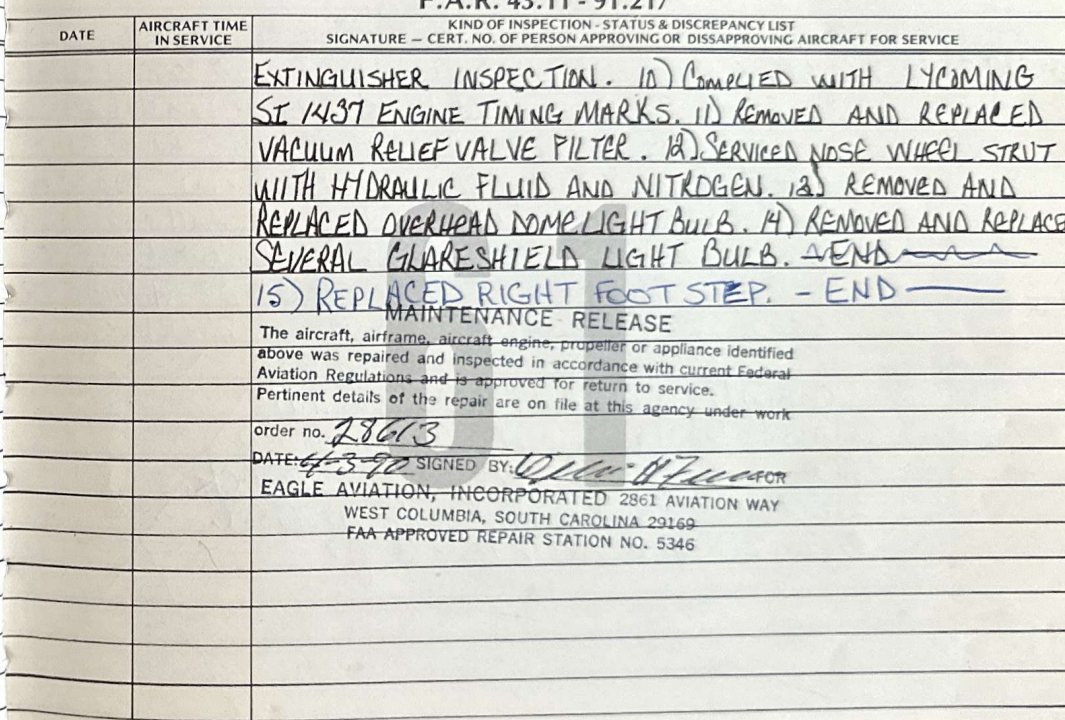 F.A.R. 43.11 - 91.217
DATE
AIRCRAFT TIME
IN SERVICE
KIND OF INSPECTION - STATUS & DISCREPANCY LIST
SIGNATURE — CERT. NO. OF PERSON APPROVING OR DISSAPPROVING AIRCRAFT FOR SERVICE
EXTINGUISHER INSPECTION. 10) COMPLIED WITH LYCOMING
SI 1437 ENGINE TIMING MARKS. 11) REMOVED AND REPLACED
VACUUM RELIEF VALVE FILTER. 12) SERVICED NOSE WHEEL STRUT
WITH HYDRAULIC FLUID AND NITROGEN. 13) REMOVED AND
REPLACED OVERHEAD DOME LIGHT BULB. 14) REMOVED AND REPLACE
SEVERAL GLARESHIELD LIGHT BULB. - END
15) REPLACED RIGHT FOOT STEP. - END
MAINTENANCE RELEASE
The aircraft, airframe, aircraft engine, propeller or appliance identified
above was repaired and inspected in accordance with current Federal
Aviation Regulations and is approved for return to service.
Pertinent details of the repair are on file at this agency under work
order no. 28613
DATE: 4-3-90 SIGNED BY: FOR
EAGLE AVIATION, INCORPORATED 2861 AVIATION WAY
WEST COLUMBIA, SOUTH CAROLINA 29169
FAA APPROVED REPAIR STATION NO. 5346
61